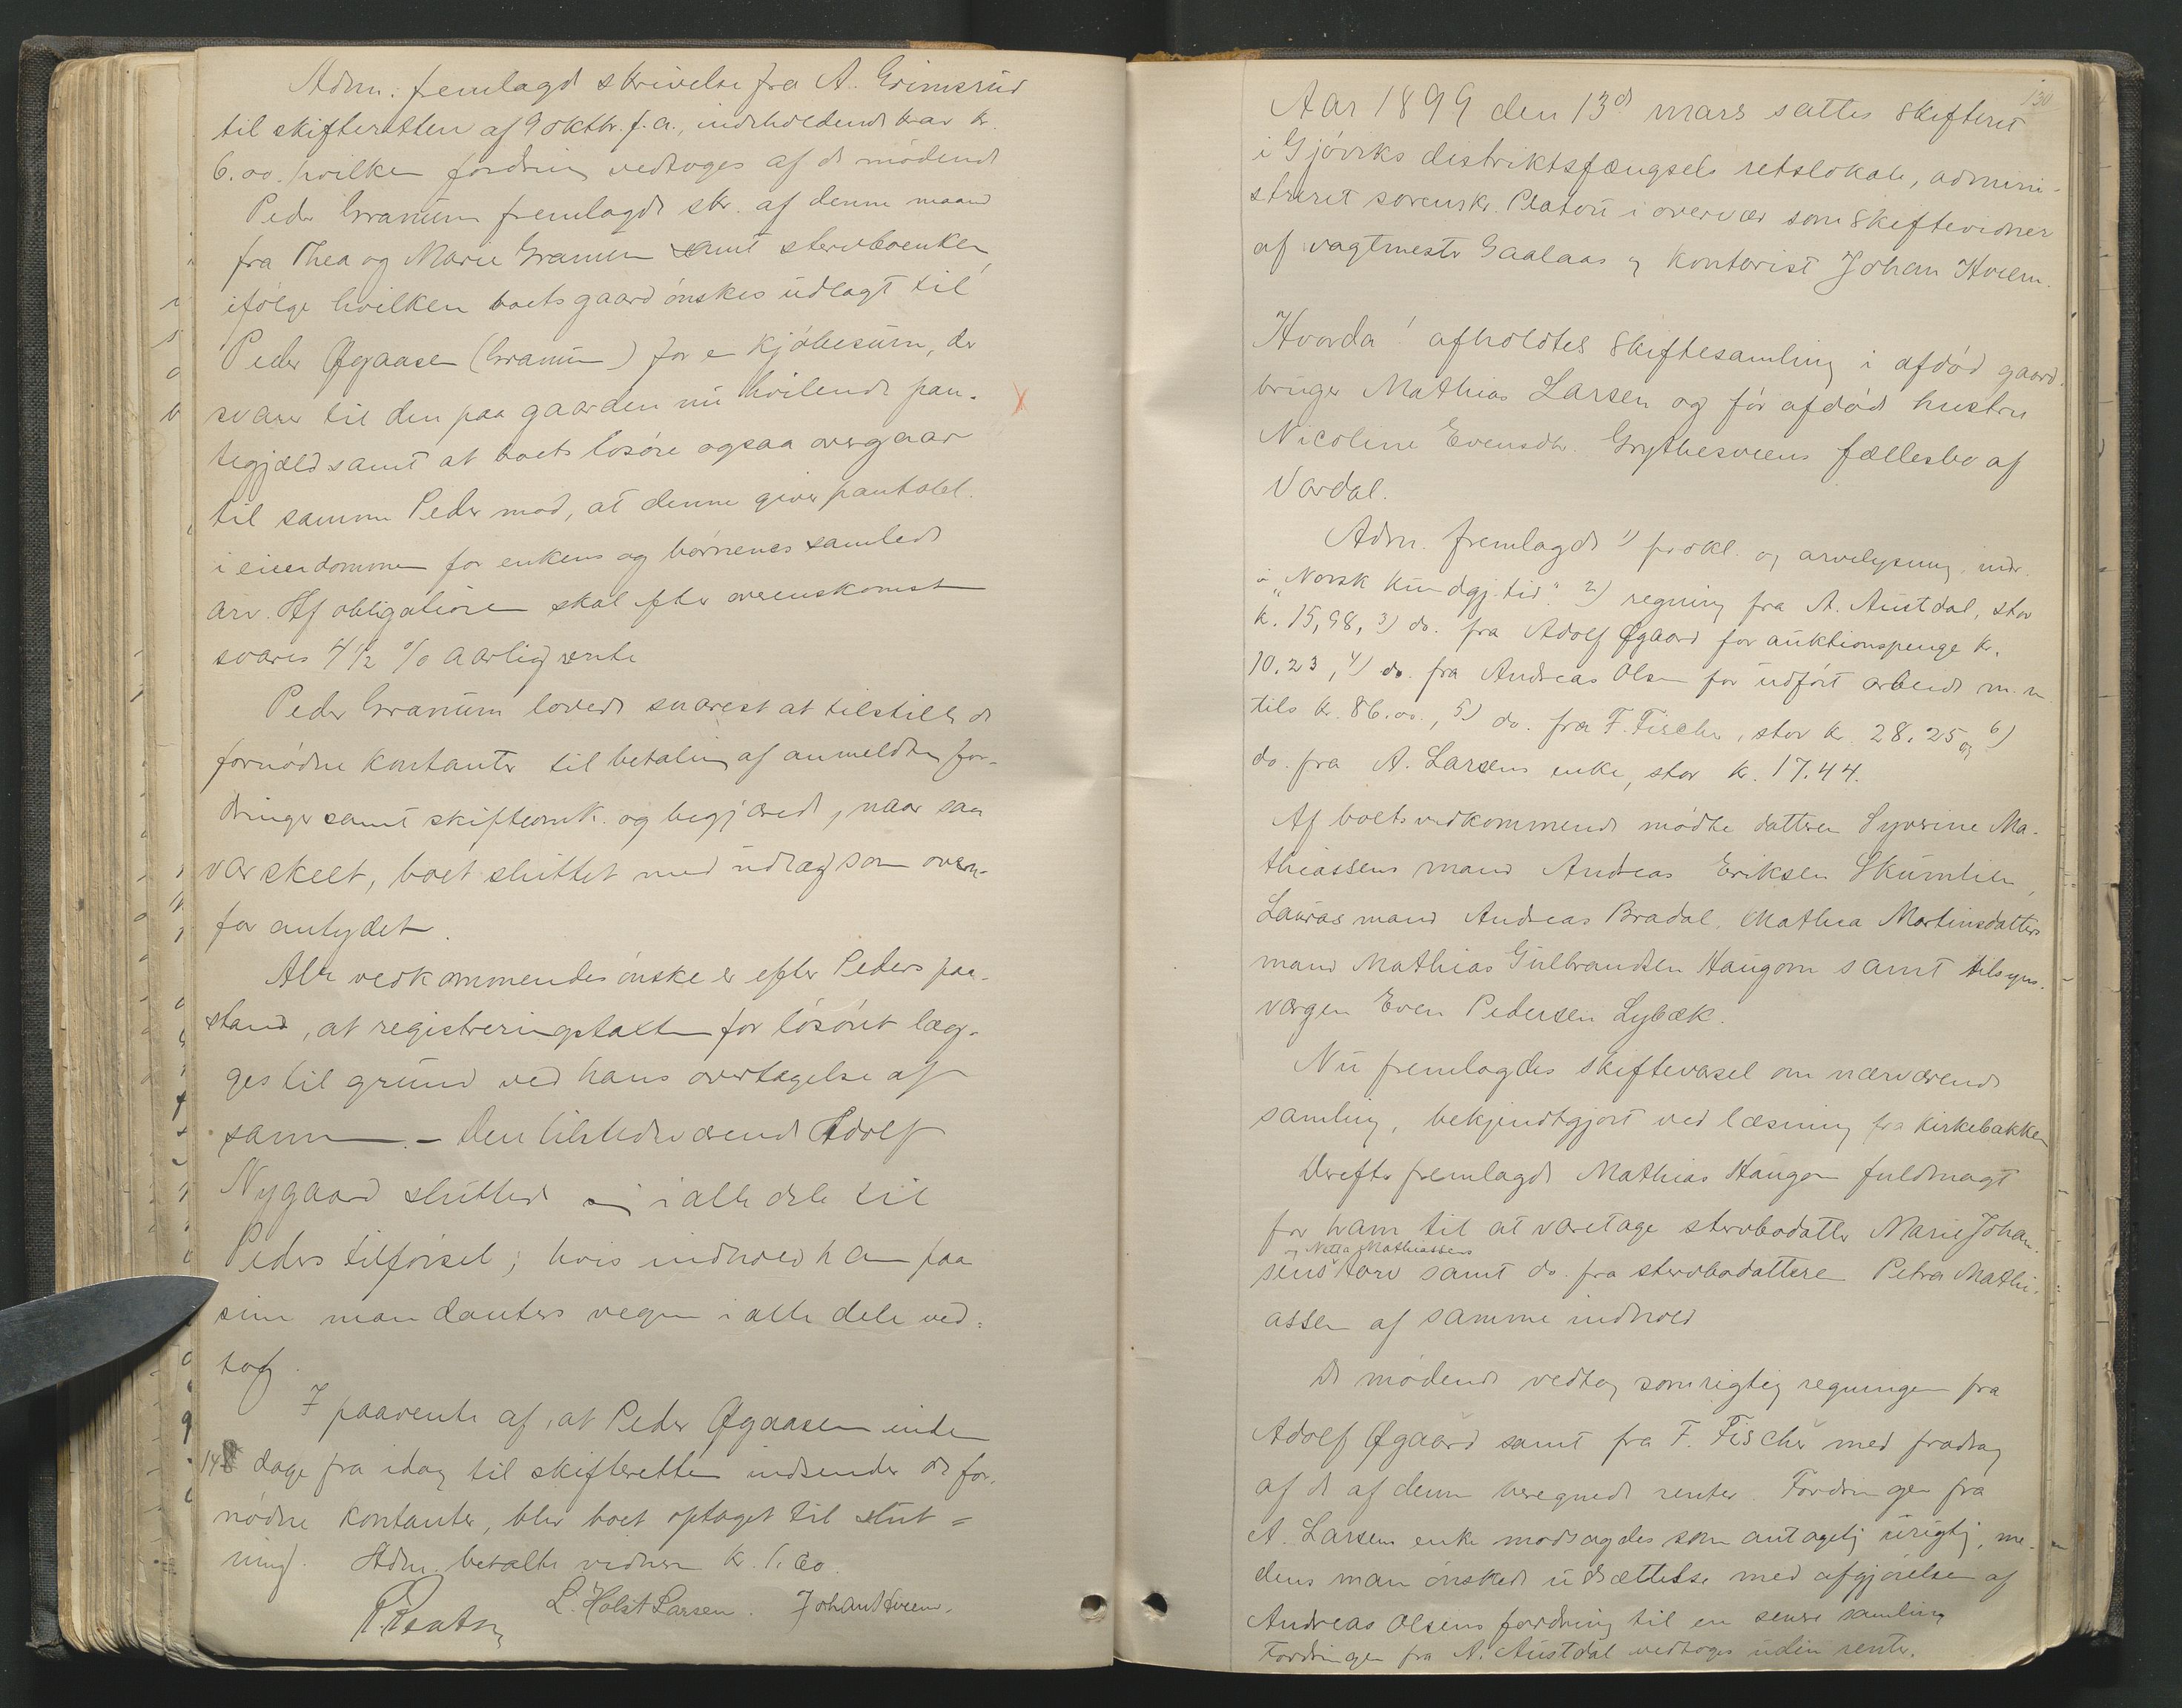 Adm. fremlagde skrivelse fra A. Grimsrud
til skifteretten af 9 oktbr. f. a., indeholdende krav kr.
6.00. hvilken fordring vedtoges af de mødende
Peder Granum fremlagde skr. af denne maaned
fra Thea og Marie Granum samt stervboenken,
ifølge hvilken boets gaard ønskes udlagt til
Peder Øgaasen (Granum) for en kjøbesum, der
svarer til den paa gaarden nu hvilende pan-
tegjæld samt at boets løsøre ogsaa overgaar
til samme Peder mod, at denne giver pantobl.
i eiendommen for enkens og børnenes samlede
arv. Af obligationen skal efter overenskomst
svares 4 1/2 % aarlig rente
Peder Granum lovede snarest at tilstille de
fornødne kontanter til betaling af anmeldte for-
dringer samt skifteomk. og begjærede, naar saa
var skeet, boet sluttet med udlæg som oven-
for antydet.
Alle vedkommendes ønske er efter Peders paa-
stand, at registreringstaxten for løsøret læg-
ges til grund ved hans overtagelse af
samme. - Den tilstedeværende Adolf
Nygaard sluttede sig i alle dele til
Peders tilførsel; hvis indhold han paa
sine mandanters vegne i alle dele ved-
tog.
I paavente af, at Peder Øgaasen inden
14 dage fra idag til skifteretten indsender de for-
nødne kontanter, blev boet optaget til slut-
ning. Adm. betalte vidnerne kr. 1.60.
L. Holst Larsen. Johan Hveem.
130
Aar 1899 den 13de mars sattes skifteret
i Gjøviks distriktsfængsels retslokale, admini-
streret sorenskr. Platou i overvær som skiftevidner
af vagtmester Gaalaas og kontorist Johan Hveem.
Hvorda! afholdtes skiftesamling i afdød gaard-
bruger Mathias Larsen og før afdøde hustru
Nicoline Evensdtr. Grythesveens fællesbo af
Vardal.
Adm. fremlagde 1) prokl. og arvelysning, indr.
i "Norsk kundgj. tid." 2) regning fra A. Austdal, stor
kr. 15,98, 3) do. fra Adolf Øgaard for auktionspenge kr.
10.23, 4) do. fra Andreas Olsen for udført arbeide m. m.
tils kr. 86.00., 5) do. fra F. Fischer, stor kr. 28.25 og 6)
do. fra A. Larsens enke, stor kr. 17.44.
Af boets vedkommende mødte datteren Syverine Ma-
thiassens mand Andreas Eriksen Skumlien,
Lauras mand Andreas Bradal, Mathea Martinsdatters
mand Mathias Gulbrandsen Haugom samt tilsyns-
værgen Even Pedersen Lybæk.
Nu fremlagdes skiftevarsel om nærværende
samling, bekjendtgjort ved læsning fra kirkebakken
Derefter fremlagde Mathias Haugom fuldmagt
for ham til at varetage stervbodatter Marie Johan-
og Netta Mathiassens
sens tarv samt do. fra stervbodatteren Petra Mathi-
assen af samme indhold
De mødende vedtog som rigtig regningen fra
Adolf Øgaard samt fra F. Fischer med fradrag
af de af denne beregnede renter. Fordringen fra
A. Larsens enke modsagdes som antagelig urigtig, me-
dens man ønskede udsættelse med afgjørelsen af
Andreas Olsens fordring til en senere samling
Fordringen fra A. Austdal vedtoges uden renter.